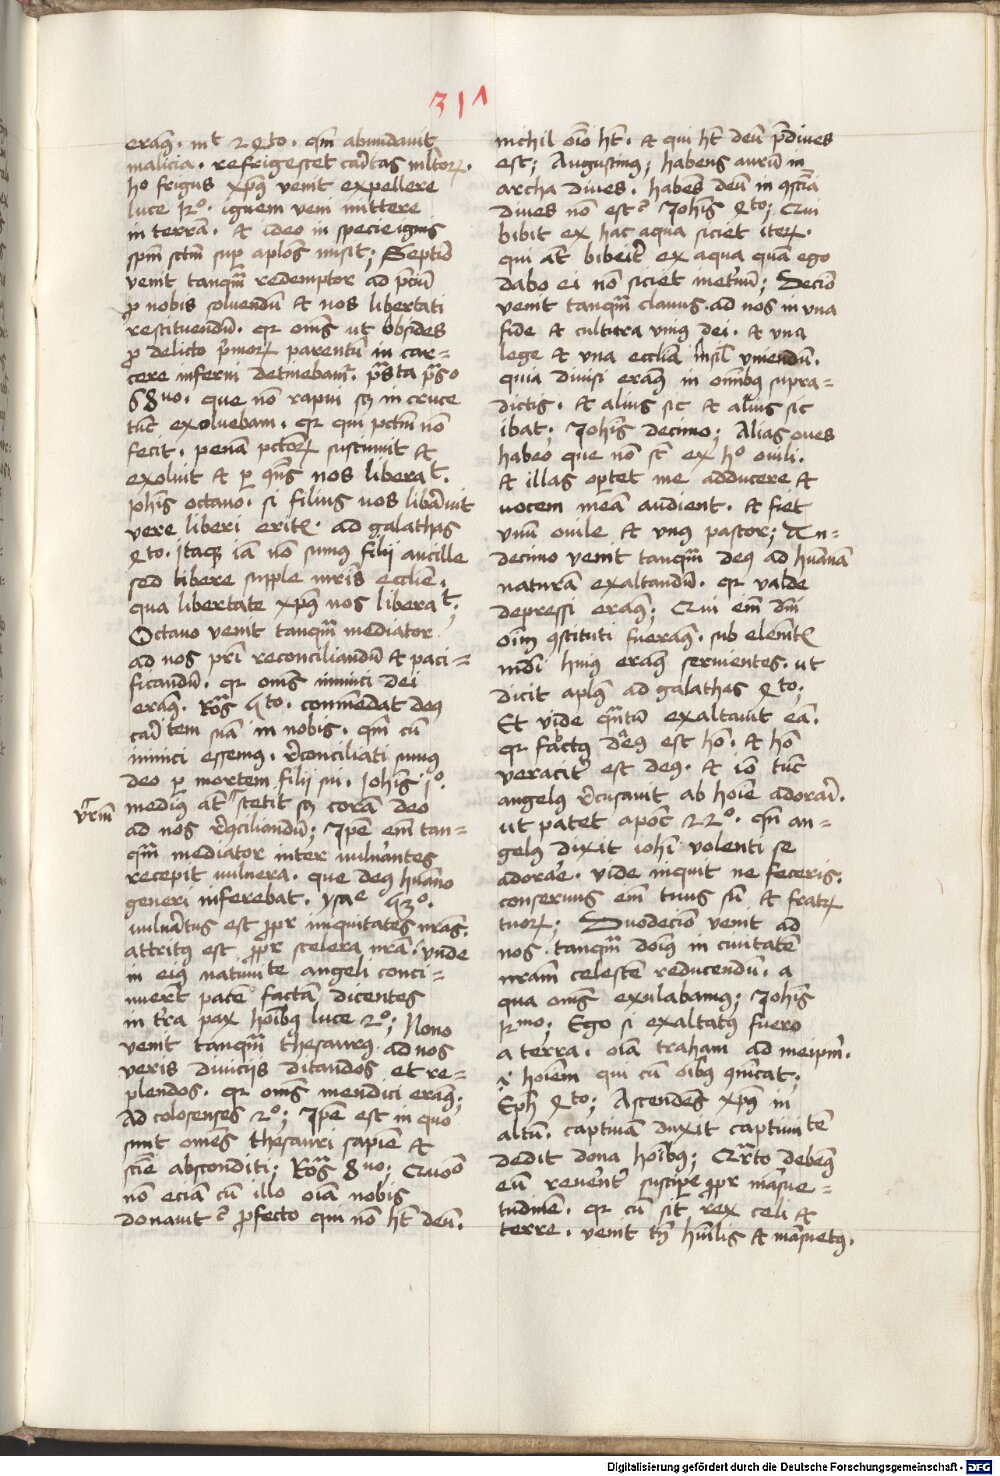 311
eram̄. mt 24to. qm̄ abundauit
malicia. refrigescet car̄itas ml̄torꝝ.
ho frigus xp̄us venit expellere
luce 12o. ignem veni mittere
in terrā. et ideo in specie ignis
sp̄m sc̄tm̄ sup̱ apl̄os misit; Septīo
venit tanqm̄ redemptor ad p̄ciū
ꝓ nobis soluendū et nos libertati
restituendū. qr om̄s ut obsides
ꝓ delicto p̄morꝝ parentū in car=
cere inferni detinebamr. psta ps̄o
68uo. que nō rapui sꝫ in cruce
tūc exoluebam. qr qui pctm̄ nō
fecit. penā pctorꝝ sustinuit et
exoluit et ꝑ qn̄s nos liberat.
Joh̄is octauo. si filius uos lib̄auit
vere liberi eritꝭ. ad galathas
4to. Itaqꝫ iā nō sumꝰ filij ancille
sed libere supple mr̄is eccl̄ie.
qua libertate xp̄us nos liberat.
Octauo venit tanqm̄ mediator
ad nos pr̄i reconciliandū et paci=
ficandū. qr om̄s inimici dei
eramꝰ. Ro 5to. commēdat deꝰ
car̄item suā in nobis. qm̄ cū
inimici essemꝰ. r̄conciliati sumꝰ
deo ꝑ mortem filij sui. Joh̄is jo.
vr̄m
mediꝰ at̄ stetit sꝫ corā deo
ad nos r̄ꝯciliandū; Ip̄e em̄ tan=
qm̄ mediator inter uuln̄antes
recepit vulnera. que deꝰ humāo
generi inferebat. ysae 53o.
vuln̄atus est ꝓpr iniquitates nr̄as.
attritꝰ est ꝓpr scelera nr̄a. vnde
in eiꝰ natiuite angeli conci=
nuer̄t patē factā dicentes
in t̄ra pax hoībꝰ luce 2o; Nono
venit tanqm̄ thesaurꝰ ad nos
veris diuicijs ditandos et re=
plendos. qr om̄s mendici eramꝰ;
Ad colosenses 2o; Ip̄e est in quo
sunt om̄es thesauri sapiē et
sciē absconditi; Ro 8uo; Quōo
nō eciā cū illo oīa nobis
donauit? ꝓfecto qui nō ht̄ deū.
nichil oīo ht̄. et qui ht̄ deū p̄diues
est; Augustinꝰ; habens aurū in
archa diues. habēs deū in ꝯsciā
diues nō est? Joh̄is 4to; Qui
bibit ex hac aqua siciet iterꝝ.
qui at̄ biberit ex aqua quā ego
dabo ei nō siciet inet̄nū; Decīo
venit tanqm̄ clauus ad nos in vna
fide et cultura vniꝰ dei. et vna
lege et vna eccl̄ia sil̄ vniendū.
quia diuisi eramꝰ in om̄ibꝰ supra=
dictis. et alius sic et alius sic
ibat; Joh̄is decimo; Alias oues
habeo que nō st̄ ex ho ouili.
et illas oportet me adducere et
vocem meā audient. et fiet
vnū ouile et vnꝰ pastor; Vn=
decimo venit tanqm̄ deꝰ ad humanā
naturā exaltandū. qr valde
depressi eramꝰ; Qui em̄ dn̄i
oīm ꝯstituti fueramꝰ. sub elem̄tꝭ
mūdi huiꝰ eramꝰ seruientes. ut
dicit apl̄us ad galathas 4to;
Et vide qn̄tū exaltauit eā.
qr factꝰ deꝰ est hō. et hō
veracit̄ est deꝰ. et iō tūc
angelꝰ r̄cusauit ab hoīe adorari.
ut patet apoc̄ 22o. qn̄ an=
gelꝰ dixit ioh̄i volenti se
adorare. vide inquit ne feceris.
conseruus em̄ tuus sū et fratrꝝ
tuorꝝ; Duodecīo venit ad
nos tanqm̄ doīus in ciuitatē
nr̄am celestē reducendū. a
qua om̄s exulabamꝰ; Joh̄is
12mo; Ego si exaltatꝰ fuero
a terra. oīa traham ad meip̄m.
.i. hoīem qui cū oībꝰ ꝯmcat;
Eph̄ 4to; Ascendēs xp̄us in
altū. captiuā duxit captiuitē
dedit dona hoībꝰ; Qrto debemꝰ
eū reuerēt̄ suscipe ꝓpr māsue=
tudinē. qr cū sit rex celi et
terre. venit tn̄ humilis et māsuetꝰ.
Digitalisierung gefördert durch die Deutsche Forschungsgemeinschaft - DFG